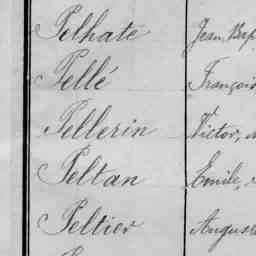 Pelhate Jean, Bap
Pellé François
Pellerin Victor,
Peltan Emile,
Peltier Auguss